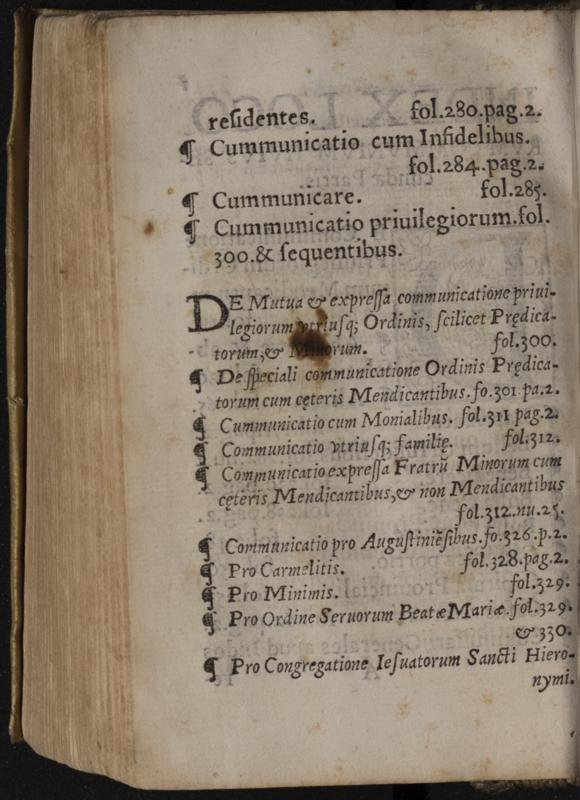 reſidentes. fol.280.pag.2.
¶ Cummunicatio cum Infidelibus.
fol.284.pag.2.
¶ Cummunicare. fol.285.
¶ Cummunicatio priuilegiorum.fol.
300.& ſequentibus.
DE Mutua & expreſſa communicatione priui-
legiorum vtriuſq; Ordinis, ſcilicet Prędica-
torum,& Minorum. fol.300.
¶ De ſpeciali communicatione Ordinis Prędica-
torum cum cęteris Mendicantibus.fo.301.pa.2.
¶ Cummunicatio cum Monialibus. fol.311 pag.2.
¶ Communicatio vtriuſq; familię. fol.312.
¶ Communicatio expreſſa Fratrū Minorum cum
cęteris Mendicantibus,& non Mendicantibus
fol.312.nu.25.
¶ Communicatio pro Auguſtiniẽſibus.fo.326.p.2.
¶ Pro Carmelitis. fol.328.pag.2.
¶ Pro Minimis. fol.329.
¶ Pro Ordine Seruorum Beatæ Mariæ.fol.329.
& 330.
¶ Pro Congregatione Ieſuatorum Sancti Hiero-
nymi.